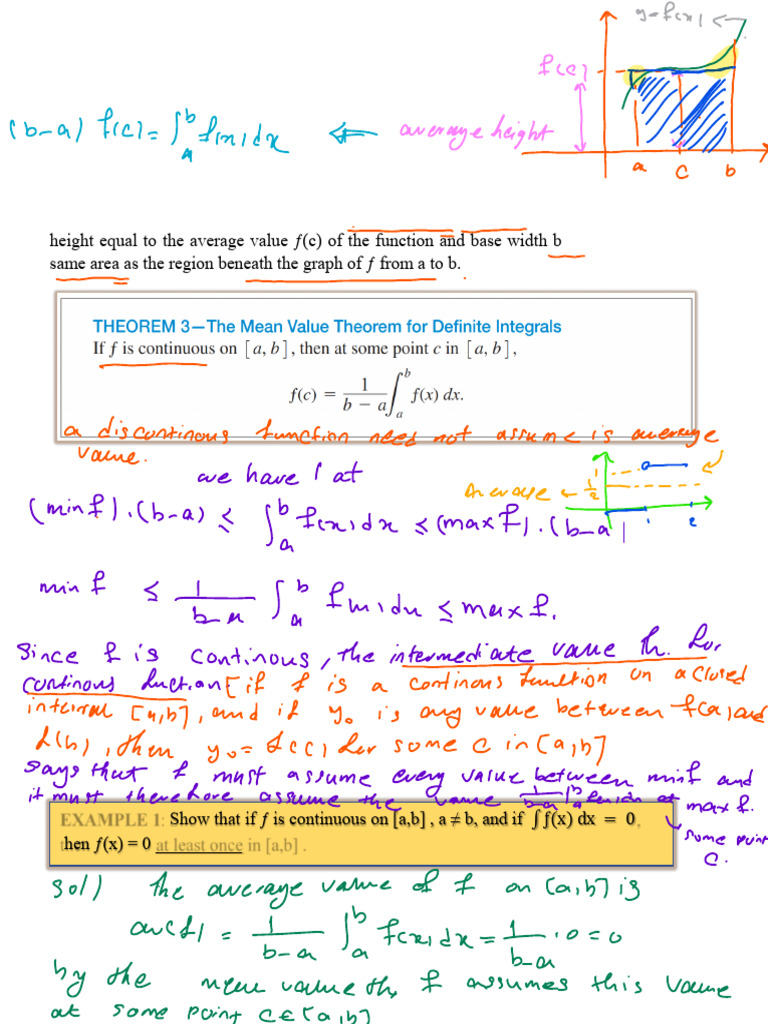 y=f(x)
f(c)
(b-a) f(c) = ∫_a^b f(x) dx ⇐ average height
a c b
height equal to the average value f(c) of the function and base width b
same area as the region beneath the graph of f from a to b.
THEOREM 3—The Mean Value Theorem for Definite Integrals
If f is continuous on [a, b], then at some point c in [a, b],
f(c) = 1/(b − a) ∫_a^b f(x) dx.
a discontinous function need not assume is average
value.
we have 1 at
Average ← 1/2
1 2
(min f).(b-a) ≤ ∫_a^b f(x) dx ≤ (max f).(b-a)
min f ≤ 1/(b-a) ∫_a^b f(x) dx ≤ max f.
Since f is continous, the intermediate value th. for
continous function [if f is a continous function on a closed
interval [a,b], and if y₀ is any value between f(a) and
f(b), then y₀ = f(c) for some c in [a,b]
says that f must assume every value between min f and
max f.
it must therefore assume the value 1/(b-a) ∫_a^b f(x) dx at
some point
c.
EXAMPLE 1: Show that if f is continuous on [a,b] , a ≠ b, and if ∫f(x) dx = 0,
then f(x) = 0 at least once in [a,b] .
sol) the average value of f on [a,b] is
av(f) = 1/(b-a) ∫_a^b f(x) dx = 1/(b-a) . 0 = 0
by the mean value th, f assumes this value
at some point c∈[a,b]